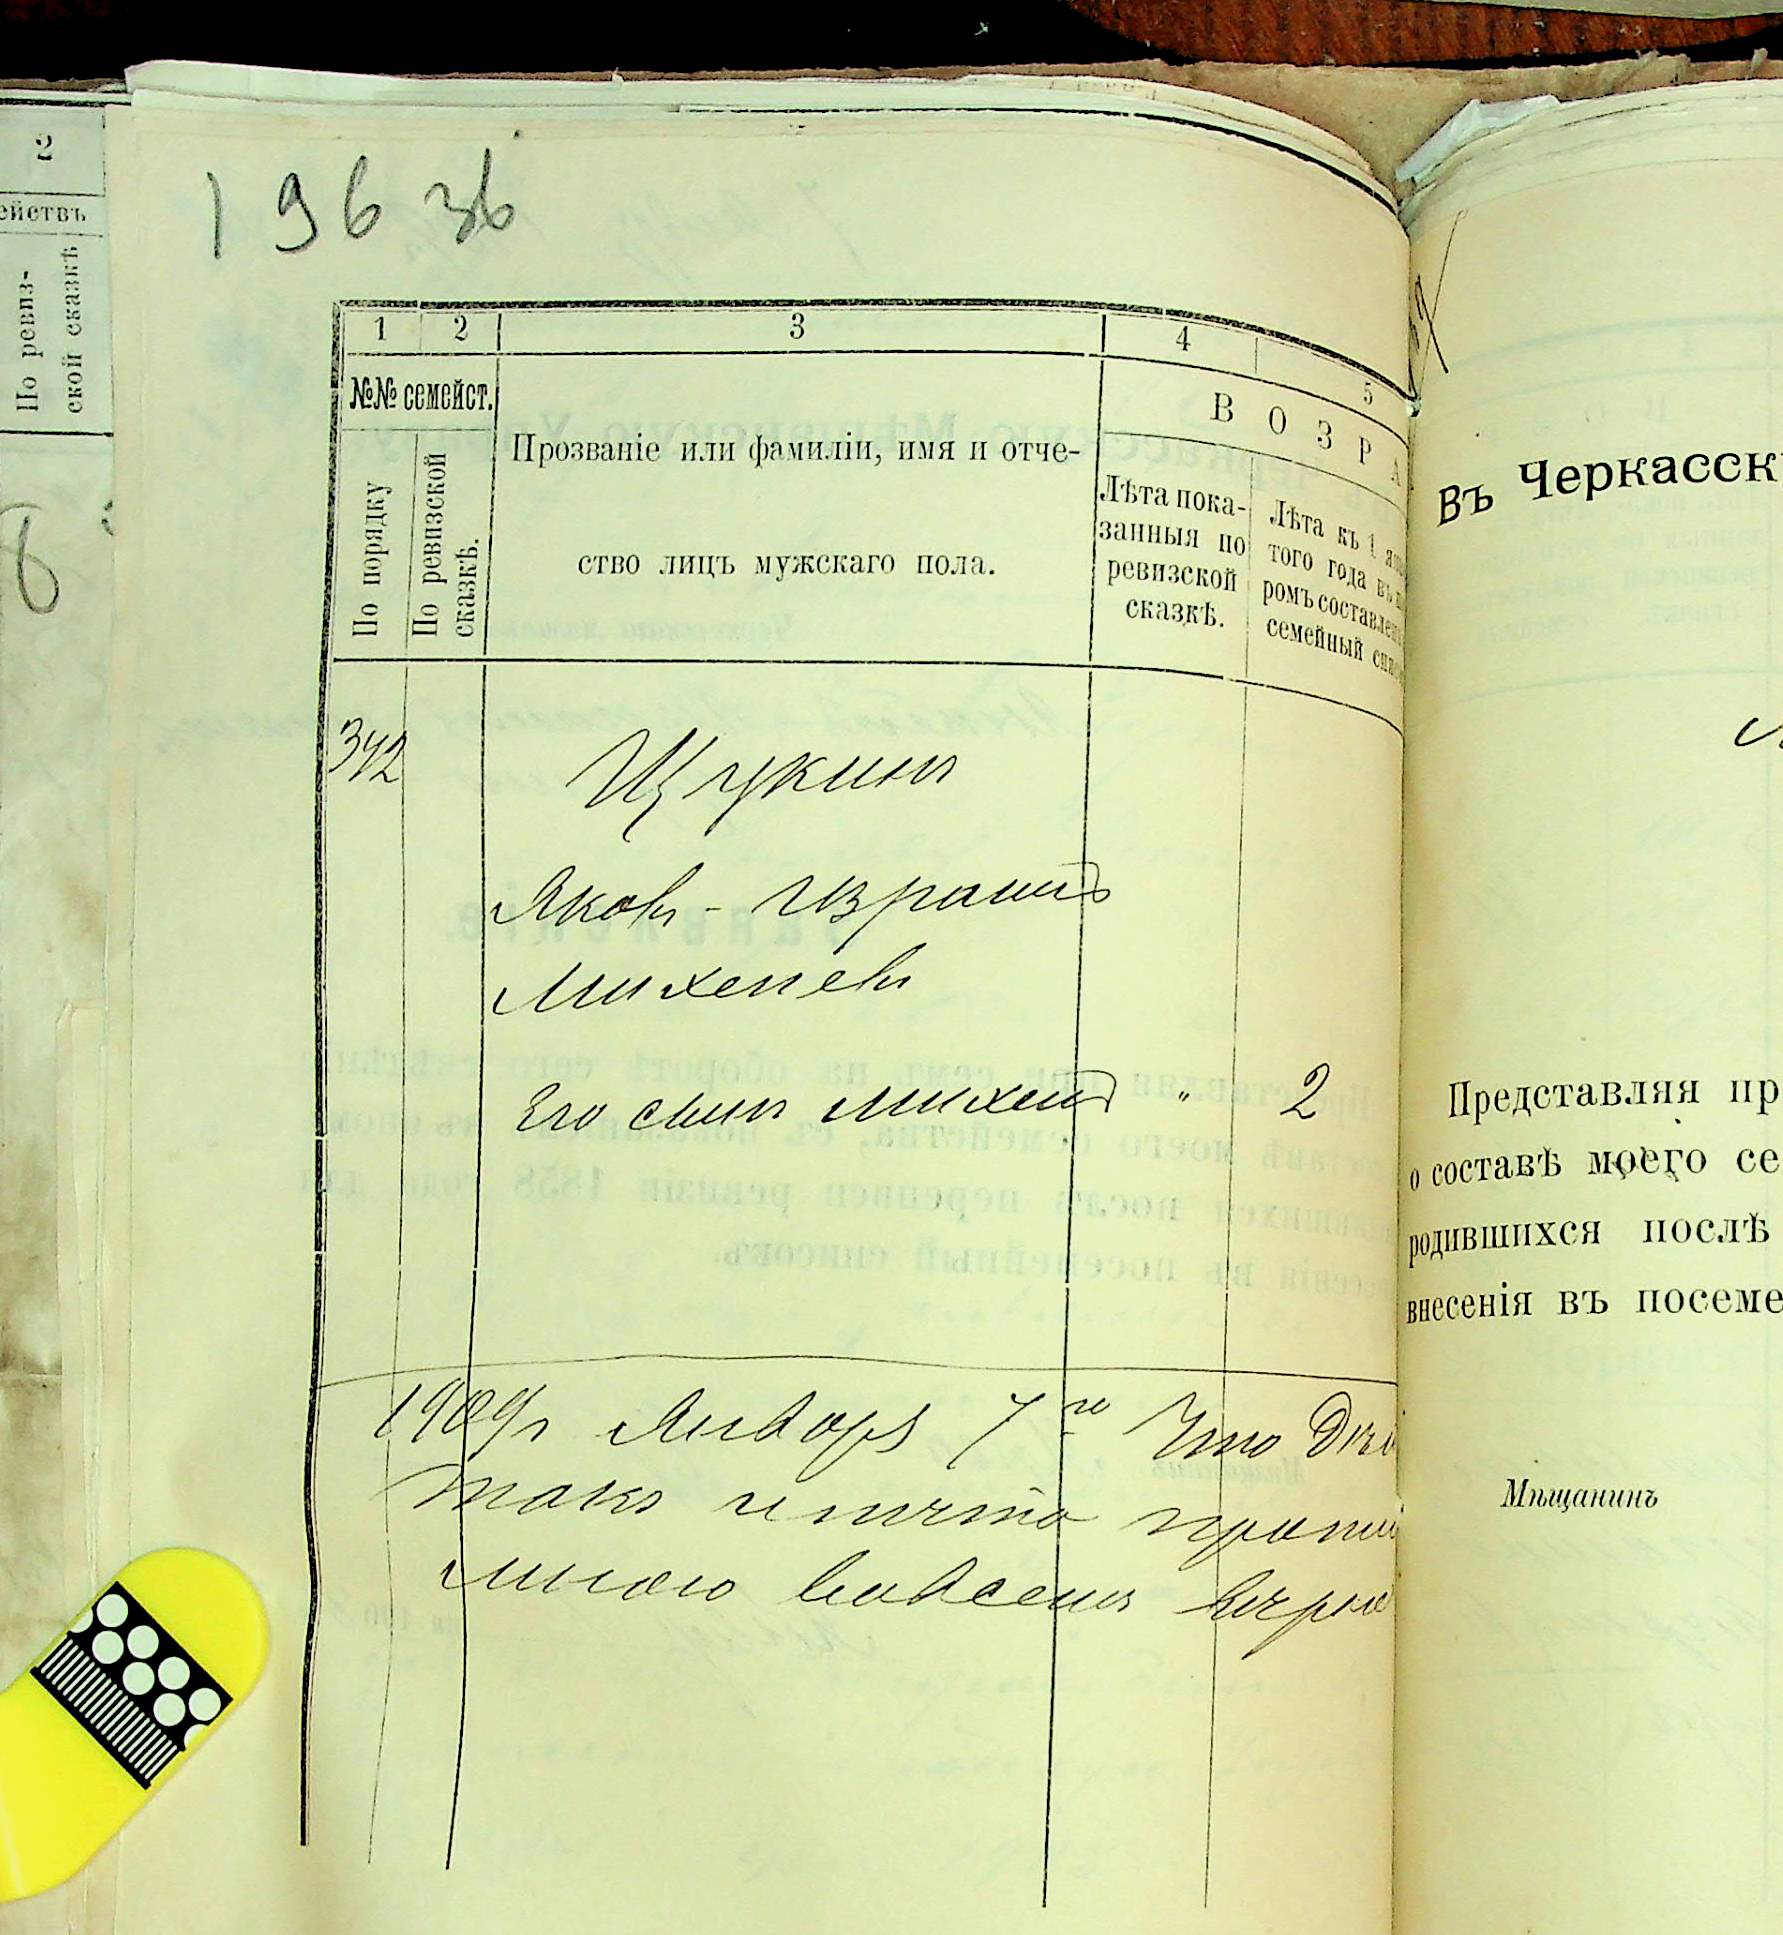 2
ействъ
По ревиз-
ской сказкѣ
6
196 зв
1 2 3 4 5
№№ семейст.
По порядку
По ревизской
сказкѣ.
Прозваніе или фамиліи, имя и отче-
ство лицъ мужскаго пола.
В О З Р А
Лѣта пока-
занныя по
ревизской
сказкѣ.
Лѣта къ 1 янв
того года въ
ромъ составлен
семейный спис
342 Щукинъ
Яковъ-Израиль
Михелевъ
Его сынъ Михель " 2
1909г Января 7го Что
такъ
мною
Въ Черкасск
Представляя пр
о составѣ моего се
родившихся послѣ
внесенія въ посеме
Мѣщанинъ